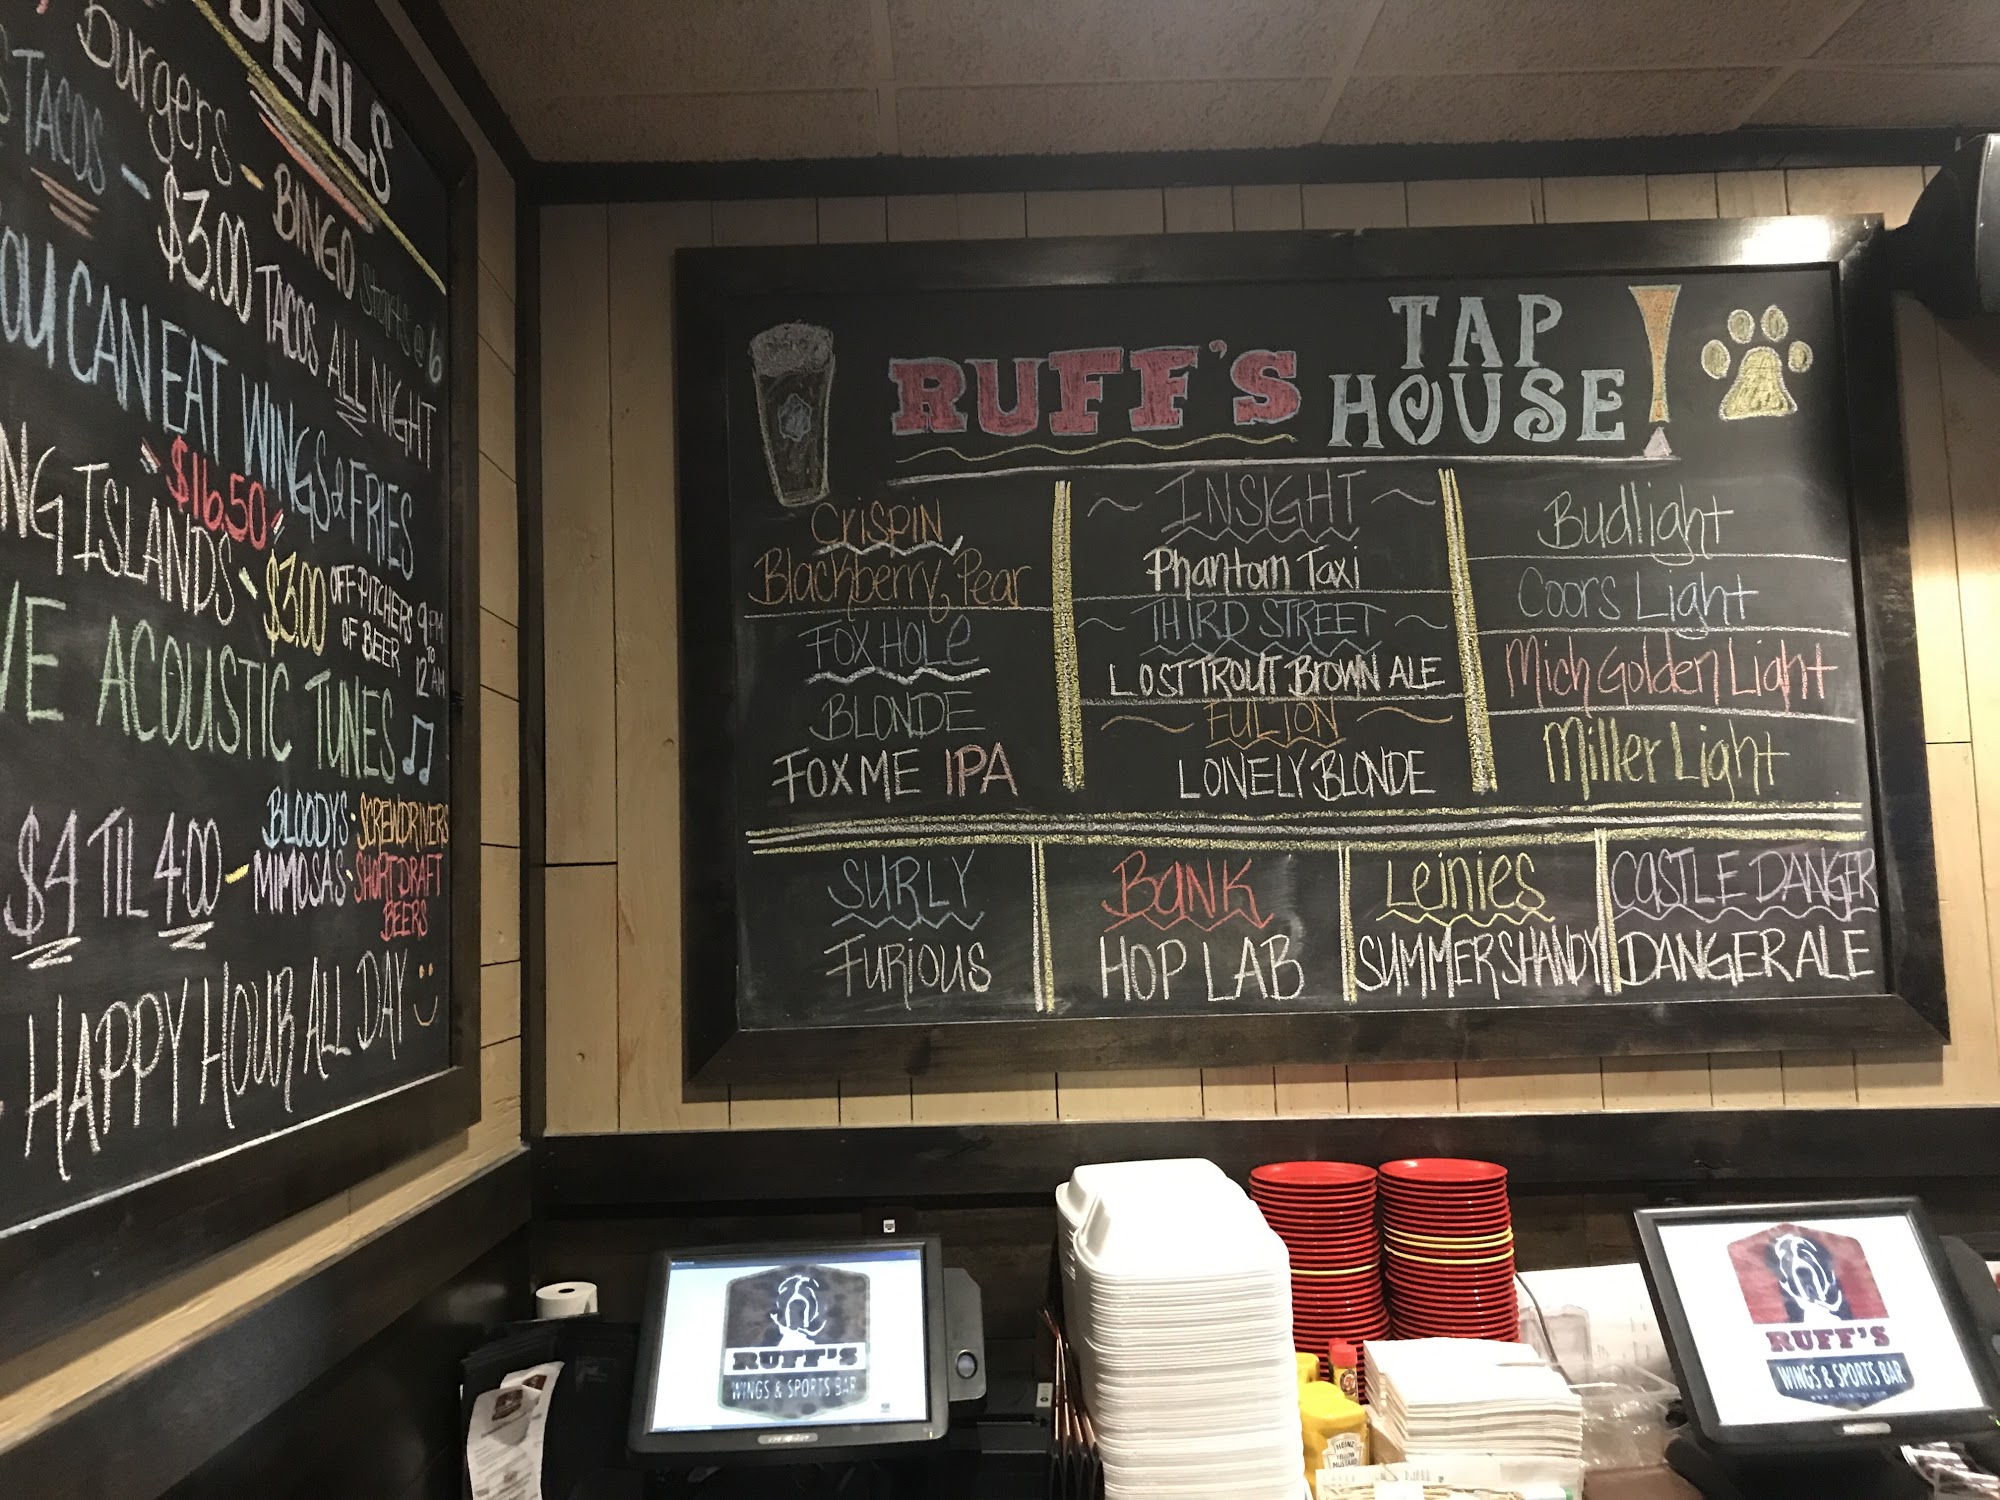 DEALS
Burgers - BINGO Starts @ 6
TACOS - $3.00 TACOS ALL NIGHT
YOU CAN EAT WINGS & FRIES
$16.50
ISLANDS - $3.00 OFF PITCHERS OF BEER 9 PM TO 12 AM
ACOUSTIC TUNES
$4 TIL 4:00 - BLOODYS · SCREWDRIVERS
MIMOSAS · SHORT DRAFT BEERS
HAPPY HOUR ALL DAY
RUFF'S TAP HOUSE
CRISPIN
Blackberry Pear
FOX HOLE
BLONDE
FOX ME IPA
~ INSIGHT ~
Phantom Taxi
~ THIRD STREET ~
LOST TROUT BROWN ALE
~ FULTON ~
LONELY BLONDE
Budlight
Coors Light
Mich Golden Light
Miller Light
SURLY
FURiOUS
BANK
HOP LAB
Leinies
SUMMER SHANDY
CASTLE DANGER
DANGER ALE
RUFF'S
WINGS & SPORTS BAR
RUFF'S
WINGS & SPORTS BAR
www.ruffswings.com
HEINZ
YELLOW
MUSTARD